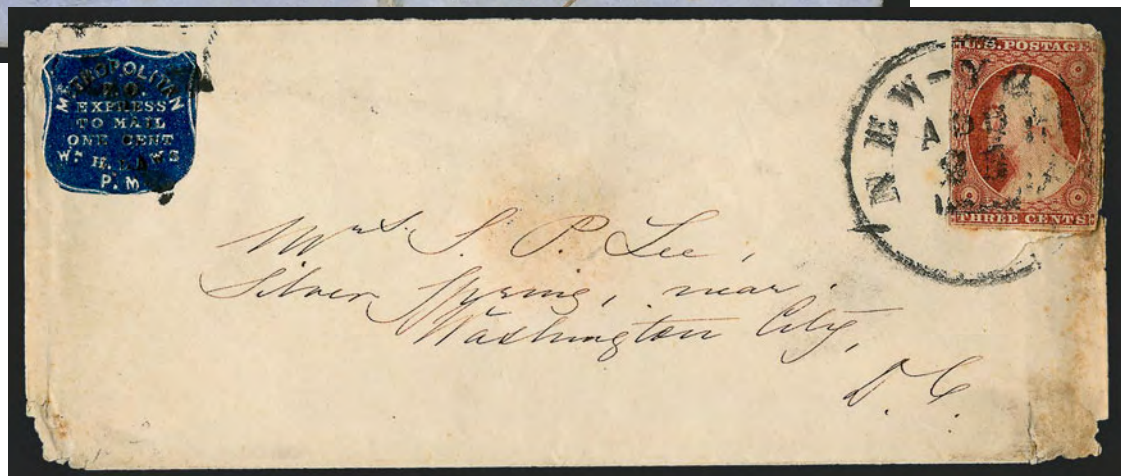 METROPOLITAN
P.O.
EXPRESS
TO MAIL
ONE CENT
Wm H. LAWS
P.M
NEW-YO
APR
U.S. POSTAGE
THREE CENTS
Mrs. S. P. Lee,
Silver Spring, near
Washington City,
D. C.